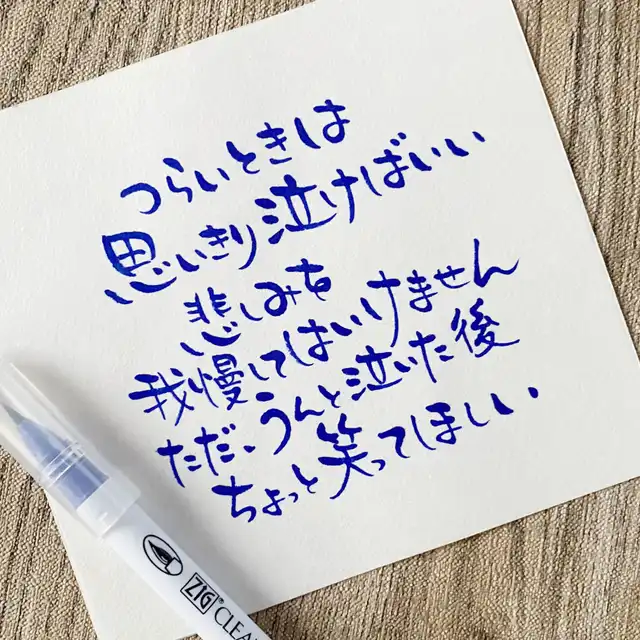 つらいときは
思いきり泣けばいい
悲しみを
我慢してはいけません
ただ、うんと泣いた後
ちょっと笑ってほしい
ZIG CLEAN